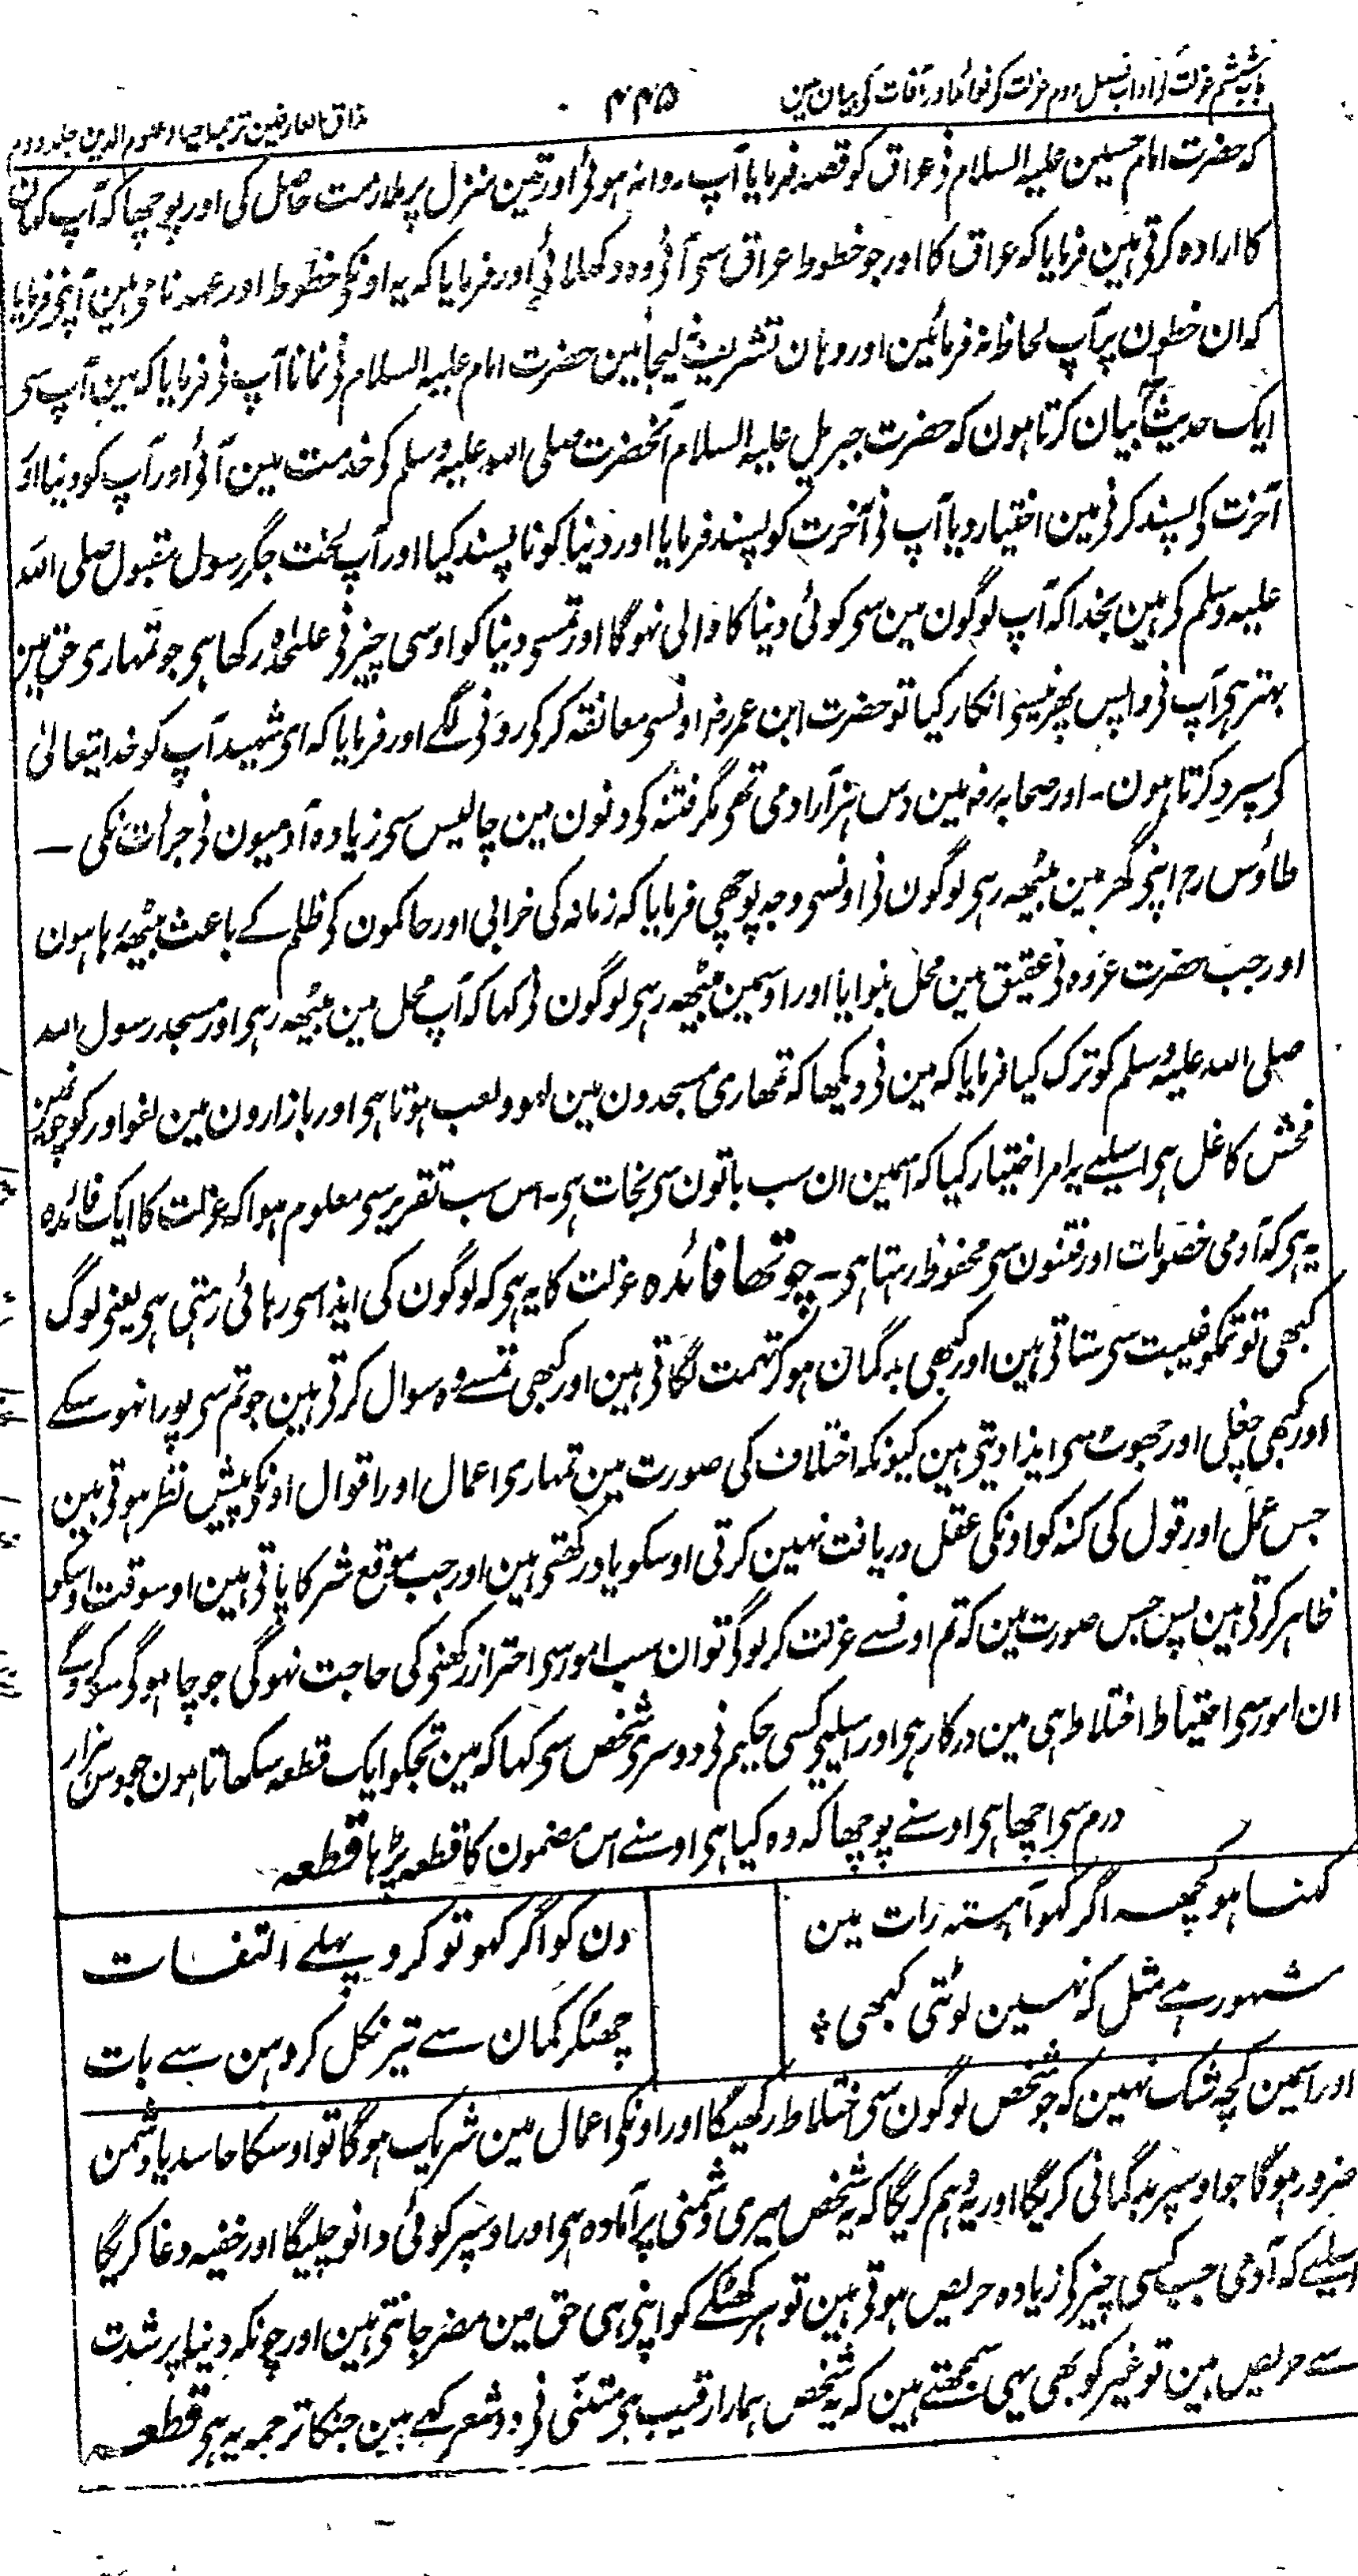 باب ششم عزلت کے آداب فصل دوم عزلت کی فوائد اور آفات کی بیان مین
۴۴۵
مذاق العارفین ترجمہ احیاء علوم الدین جلد دوم
کہ حضرت امام حسین علیہ السلام نی عراق کو قصد فرمایا آپ روانہ ہوئی اور تین منزل پر ملازمت حاصل کی اور پوچھا کہ آپ کہان
کا ارادہ کرتی ہین فرمایا کہ عراق کا اور جو خطوط عراق سی آئی وہ دکھلائی اور فرمایا کہ یہ اونکی خطوط اور عہد نامی ہین آپنی فرمایا
کہ ان خطون پر آپ لحاظ نہ فرمائین اور وہان تشریف لیجائین حضرت امام علیہ السلام نی نمانا آپ نی فرمایا کہ مین آپ سی
ایک حدیث بیان کرتا ہون کہ حضرت جبریل علیہ السلام آنحضرت صلی اللہ علیہ وسلم کی خدمت مین آئی اور آپ کو دنیا اور
آخرت کی پسند کرنی مین اختیار دیا آپ نی آخرت کو پسند فرمایا اور دنیا کو ناپسند کیا اور آپ لخت جگر رسول مقبول صلی اللہ
علیہ وسلم کی ہین بخدا کہ آپ لوگون مین سی کوئی دنیا کا والی نہوگا اور تمسی دنیا کو اوسی چیز نی علیٰحدہ رکھا ہی جو تمہاری حق مین
بہتر ہی آپ نی واپس پھرنیسی انکار کیا تو حضرت ابن عمر رضہ اونسی معانقہ کر کی رونی لگے اور فرمایا کہ ای شہید آپ کو خدایتعالیٰ
کی سپرد کرتا ہون ۔ اور صحابہ رضہ مین دس ہزار آدمی تھی مگر فتنہ کی دنون مین چالیس سی زیادہ آدمیون نی جرأت نکی ۔
طاؤس رح اپنی گھر مین بیٹھہ رہی لوگون نی اونسی وجہ پوچھی فرمایا کہ زمانہ کی خرابی اور حاکمون کی ظلم کے باعث بیٹھہ رہا ہون
اور جب حضرت عروہ نی عقیق مین محل بنوایا اور اوسمین بیٹھہ رہی لوگون نی کہا کہ آپ محل مین بیٹھہ رہی اور مسجد رسول اللہ
صلی اللہ علیہ وسلم کو ترک کیا فرمایا کہ مین نی دیکھا کہ تمھاری مسجدون مین لہو و لعب ہوتا ہی اور بازارون مین لغو اور کوچون مین
فحش کا غل ہی اسلیے یہ امر اختیار کیا کہ اسمین ان سب باتون سی نجات ہی ۔ اس سب تقریر سی معلوم ہوا کہ عزلت کا ایک فائدہ
یہ ہی کہ آدمی خصومات اور فتنون سی محفوظ رہتا ہی ۔ چوتھا فائدہ عزلت کا یہ ہی کہ لوگون کی ایذا سی رہائی رہتی ہی یعنی لوگ
کبھی تو تمکو غیبت سی ستاتی ہین اور کبھی بدگمان ہو کر تہمت لگاتی ہین اور کبھی تمسے وہ سوال کرتی ہین جو تم سی پورا نہو سکے
اور کبھی چغلی اور جھوٹ سی ایذا دیتی ہین کیونکہ اختلاف کی صورت مین تمہاری اعمال اور اقوال اونکی پیش نظر ہوتی ہین
جس عمل اور قول کی کنہ کو اونکی عقل دریافت نہین کرتی اوسکو یاد رکھتی ہین اور جب موقع شر کا پاتی ہین اوسوقت اوسکو
ظاہر کرتی ہین پس جس صورت مین کہ تم اونسے عزلت کر لوگی تو ان سب امور سی احتراز رکھنی کی حاجت نہوگی جو چاہوگی سو کروگے
ان امور سی احتیاط اختلاط ہی مین درکار ہی اور اسلیی کسی حکیم نی دوسری شخص سی کہا کہ مین تجکو ایک قطعہ سکھاتا ہون جو دس ہزار
درم سی اچھا ہی اوسنے پوچھا کہ وہ کیا ہی اوسنے اس مضمون کا قطعہ پڑہا قطعہ
کہنا ہو کچھہ اگر کہو آہستہ رات مین
دن کو اگر کہو تو کرو پہلے التفات
مشہور ہے مثل کہ نہین لوٹتی کبھی
چھٹکر کمان سے تیر نکل کر دہن سے بات
اور اسمین کچہ شک نہین کہ جو شخص لوگون سی اختلاط رکھیگا اور اونکی اعمال مین شریک ہوگا تو اوسکا حاسد یا دشمن
ضرور ہوگا جو اوسپر بدگمانی کریگا اور یہ وہم کریگا کہ یہ شخص میری دشمنی پر آمادہ ہی اور اوسپر کوئی دانو چلیگا اور خفیہ دغا کریگا
اسلیے کہ آدمی جب کسی چیز کی زیادہ حریص ہوتی ہین تو ہر کھٹکے کو اپنی ہی حق مین مضر جانتی ہین اور چونکہ دنیا پر شدت
سے حریص ہین تو غیر کو بھی یہی سمجھتے ہین کہ یہ شخص ہمارا رقیب ہی متنبی نی دو شعر کہے ہین جنکا ترجمہ یہ ہی قطعہ